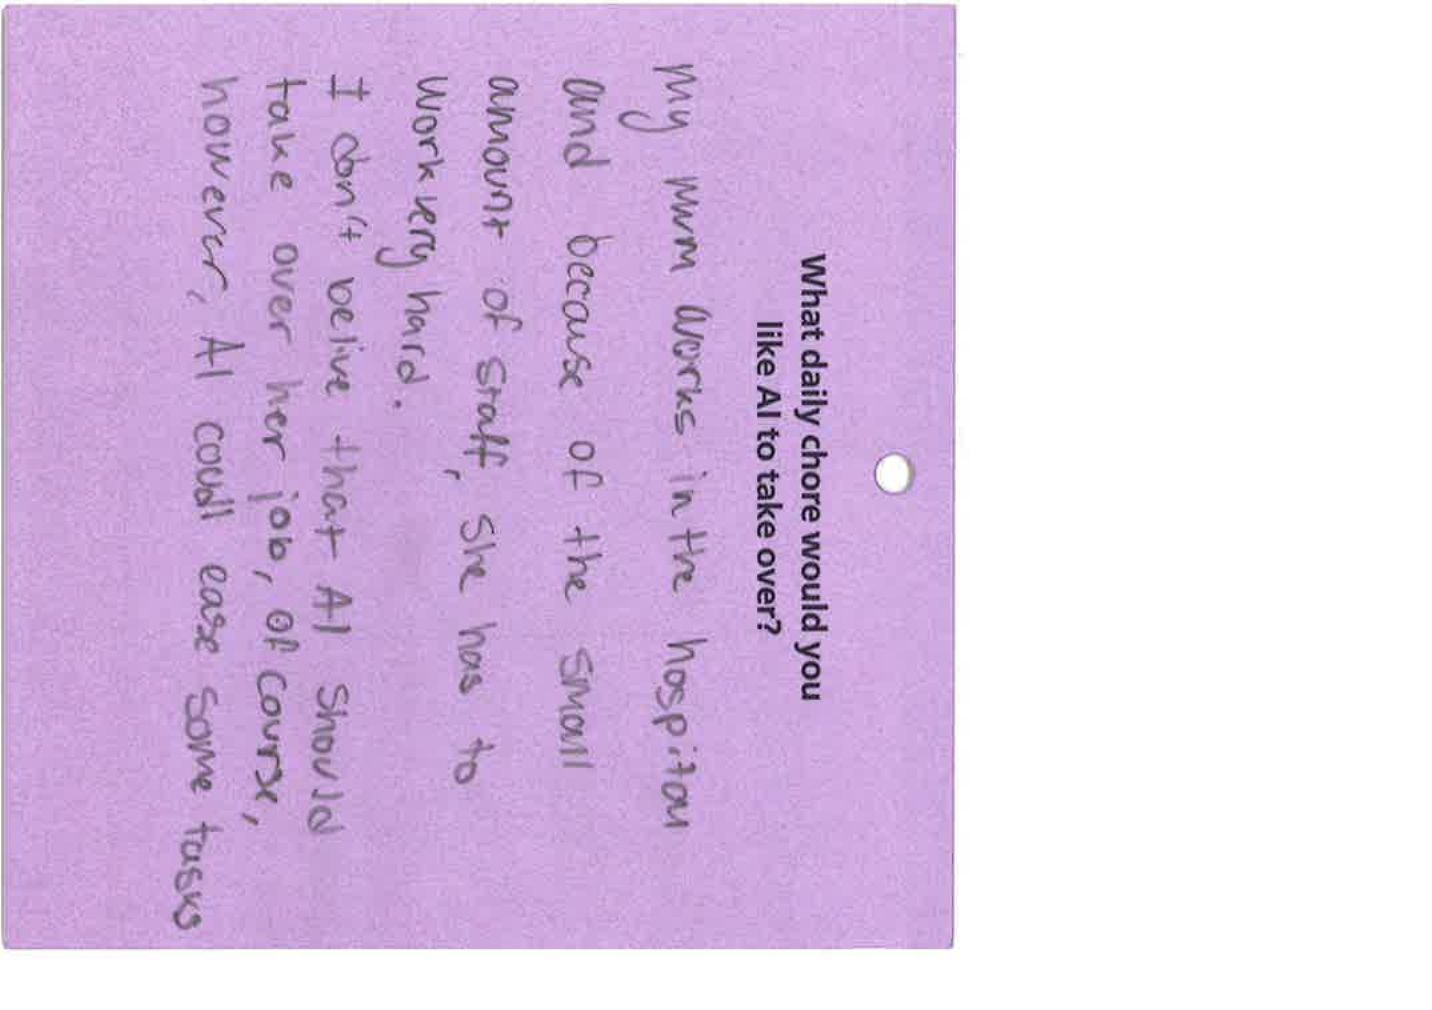 What daily chore would you
like AI to take over?
My mum works in the hospital
and because of the small
amount of staff, she has to
work very hard.
I don't belive that AI should
take over her job, of course,
however, AI coudl ease some tasks